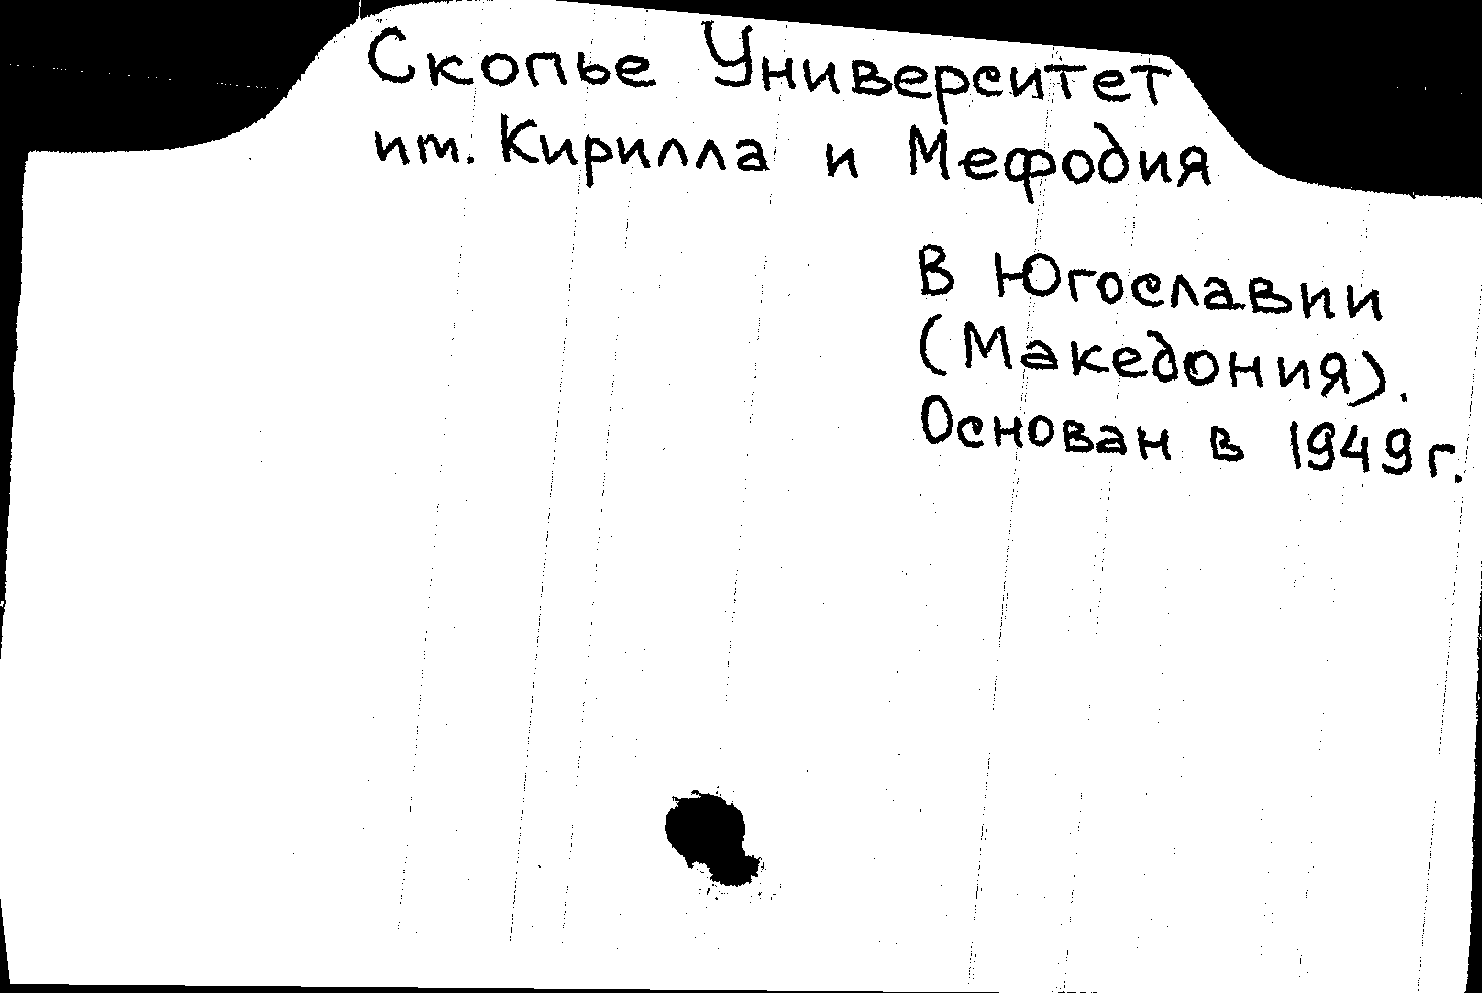 Скопье Университет
им. Кирилла и Мефодия
В Югославии
(Македония).
Основан в 1949 г.